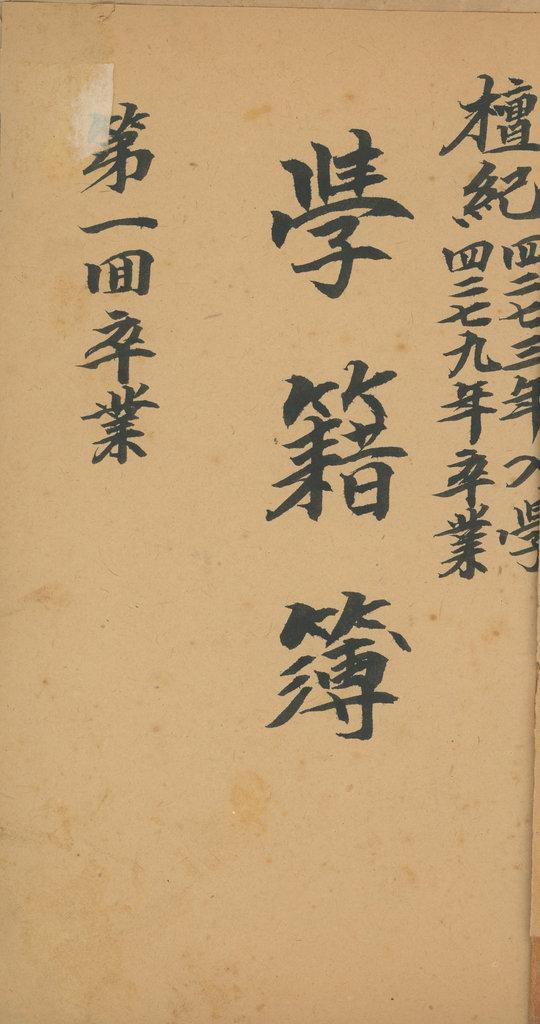 檀紀
四二七三年入學
四二七九年卒業
學籍簿
第一回卒業